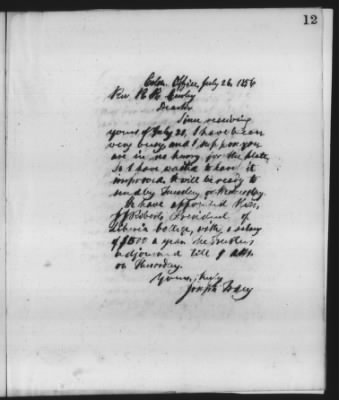 12
Colon. Office, July 26, 1856
Rev R R Gurley
Dear Sir
Since receiving
yours of July 21, I have been
very busy, and I suppose you
are in no hurry for the plate,
so I have waited to have it
improved. It will be ready to
send by Tuesday or Wednesday
We have appointed Hon.
J J Roberts President of
Liberia College, with a salary
of $1500 a year. The Trustees
adjourned till 9
on Thursday.
Yours, truly
Joseph Tracy